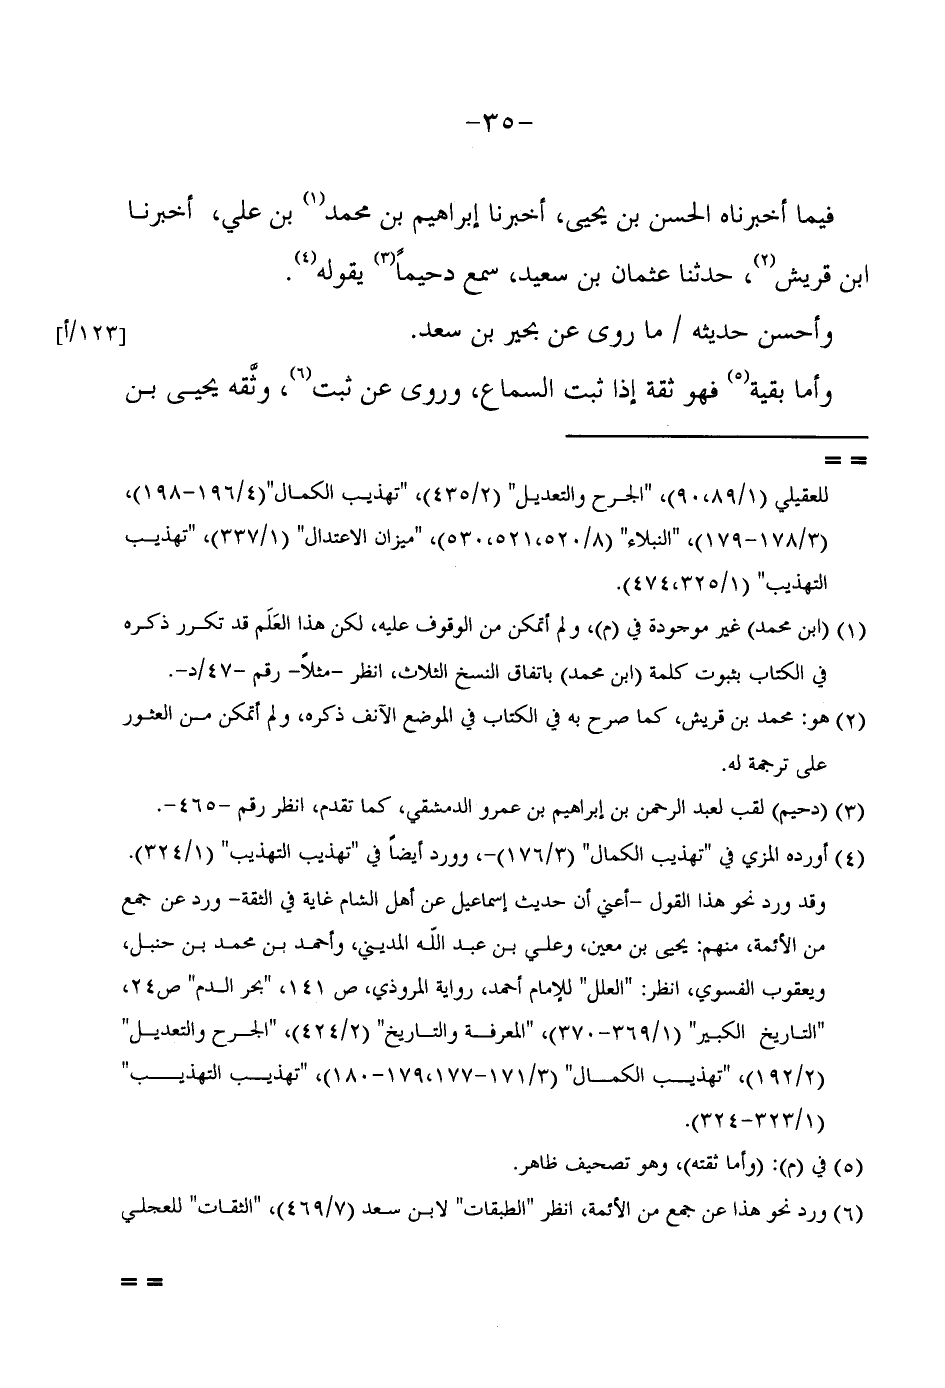 -٣٥-
فيما أخبرناه الحسن بن يحيى، أخبرنا إبراهيم بن محمد(١) بن علي، أخبرنا
ابن قريش(٢)، حدثنا عثمان بن سعيد، سمع دحيماً(٣) يقوله(٤).
وأحسن حديثه / ما روى عن بحير بن سعد. [١٢٣/أ]
وأما بقية(٥) فهو ثقة إذا ثبت السماع، وروى عن ثبت(٦)، وثَّقه يحيى بن
= =
للعقيلي (٩٠،٨٩/١)، "الجرح والتعديل" (٤٣٥/٢)، "تهذيب الكمال"(١٩٦/٤-١٩٨)،
(١٧٨/٣-١٧٩)، "النبلاء" (٥٣٠،٥٢١،٥٢٠/٨)، "ميزان الاعتدال" (٣٣٧/١)، "تهذيب
التهذيب" (٤٧٤،٣٢٥/١).
(١) (ابن محمد) غير موجودة في (م)، ولم أتمكن من الوقوف عليه، لكن هذا العَلَم قد تكرر ذكره
في الكتاب بثبوت كلمة (ابن محمد) باتفاق النسخ الثلاث، انظر -مثلاً- رقم -٤٧/د-.
(٢) هو: محمد بن قريش، كما صرح به في الكتاب في الموضع الآنف ذكره، ولم أتمكن من العثور
على ترجمة له.
(٣) (دحيم) لقب لعبد الرحمن بن إبراهيم بن عمرو الدمشقي، كما تقدم، انظر رقم -٤٦٥-.
(٤) أورده المزي في "تهذيب الكمال" (١٧٦/٣)-، وورد أيضاً في "تهذيب التهذيب" (٣٢٤/١).
وقد ورد نحو هذا القول -أعني أن حديث إسماعيل عن أهل الشام غاية في الثقة- ورد عن جمع
من الأئمة، منهم: يحيى بن معين، وعلي بن عبد الله المديني، وأحمد بن محمد بن حنبل،
ويعقوب الفسوي، انظر: "العلل" للإمام أحمد، رواية المروذي، ص ١٤١، "بحر الدم" ص٢٤،
"التاريخ الكبير" (٣٦٩/١-٣٧٠)، "المعرفة والتاريخ" (٤٢٤/٢)، "الجرح والتعديل"
(١٩٢/٢)، "تهذيب الكمال" (١٧١/٣-١٧٩،١٧٧-١٨٠)، "تهذيب التهذيب"
(٣٢٣/١-٣٢٤).
(٥) في (م): (وأما ثقته)، وهو تصحيف ظاهر.
(٦) ورد نحو هذا عن جمع من الأئمة، انظر "الطبقات" لابن سعد (٤٦٩/٧)، "الثقات" للعجلي
= =